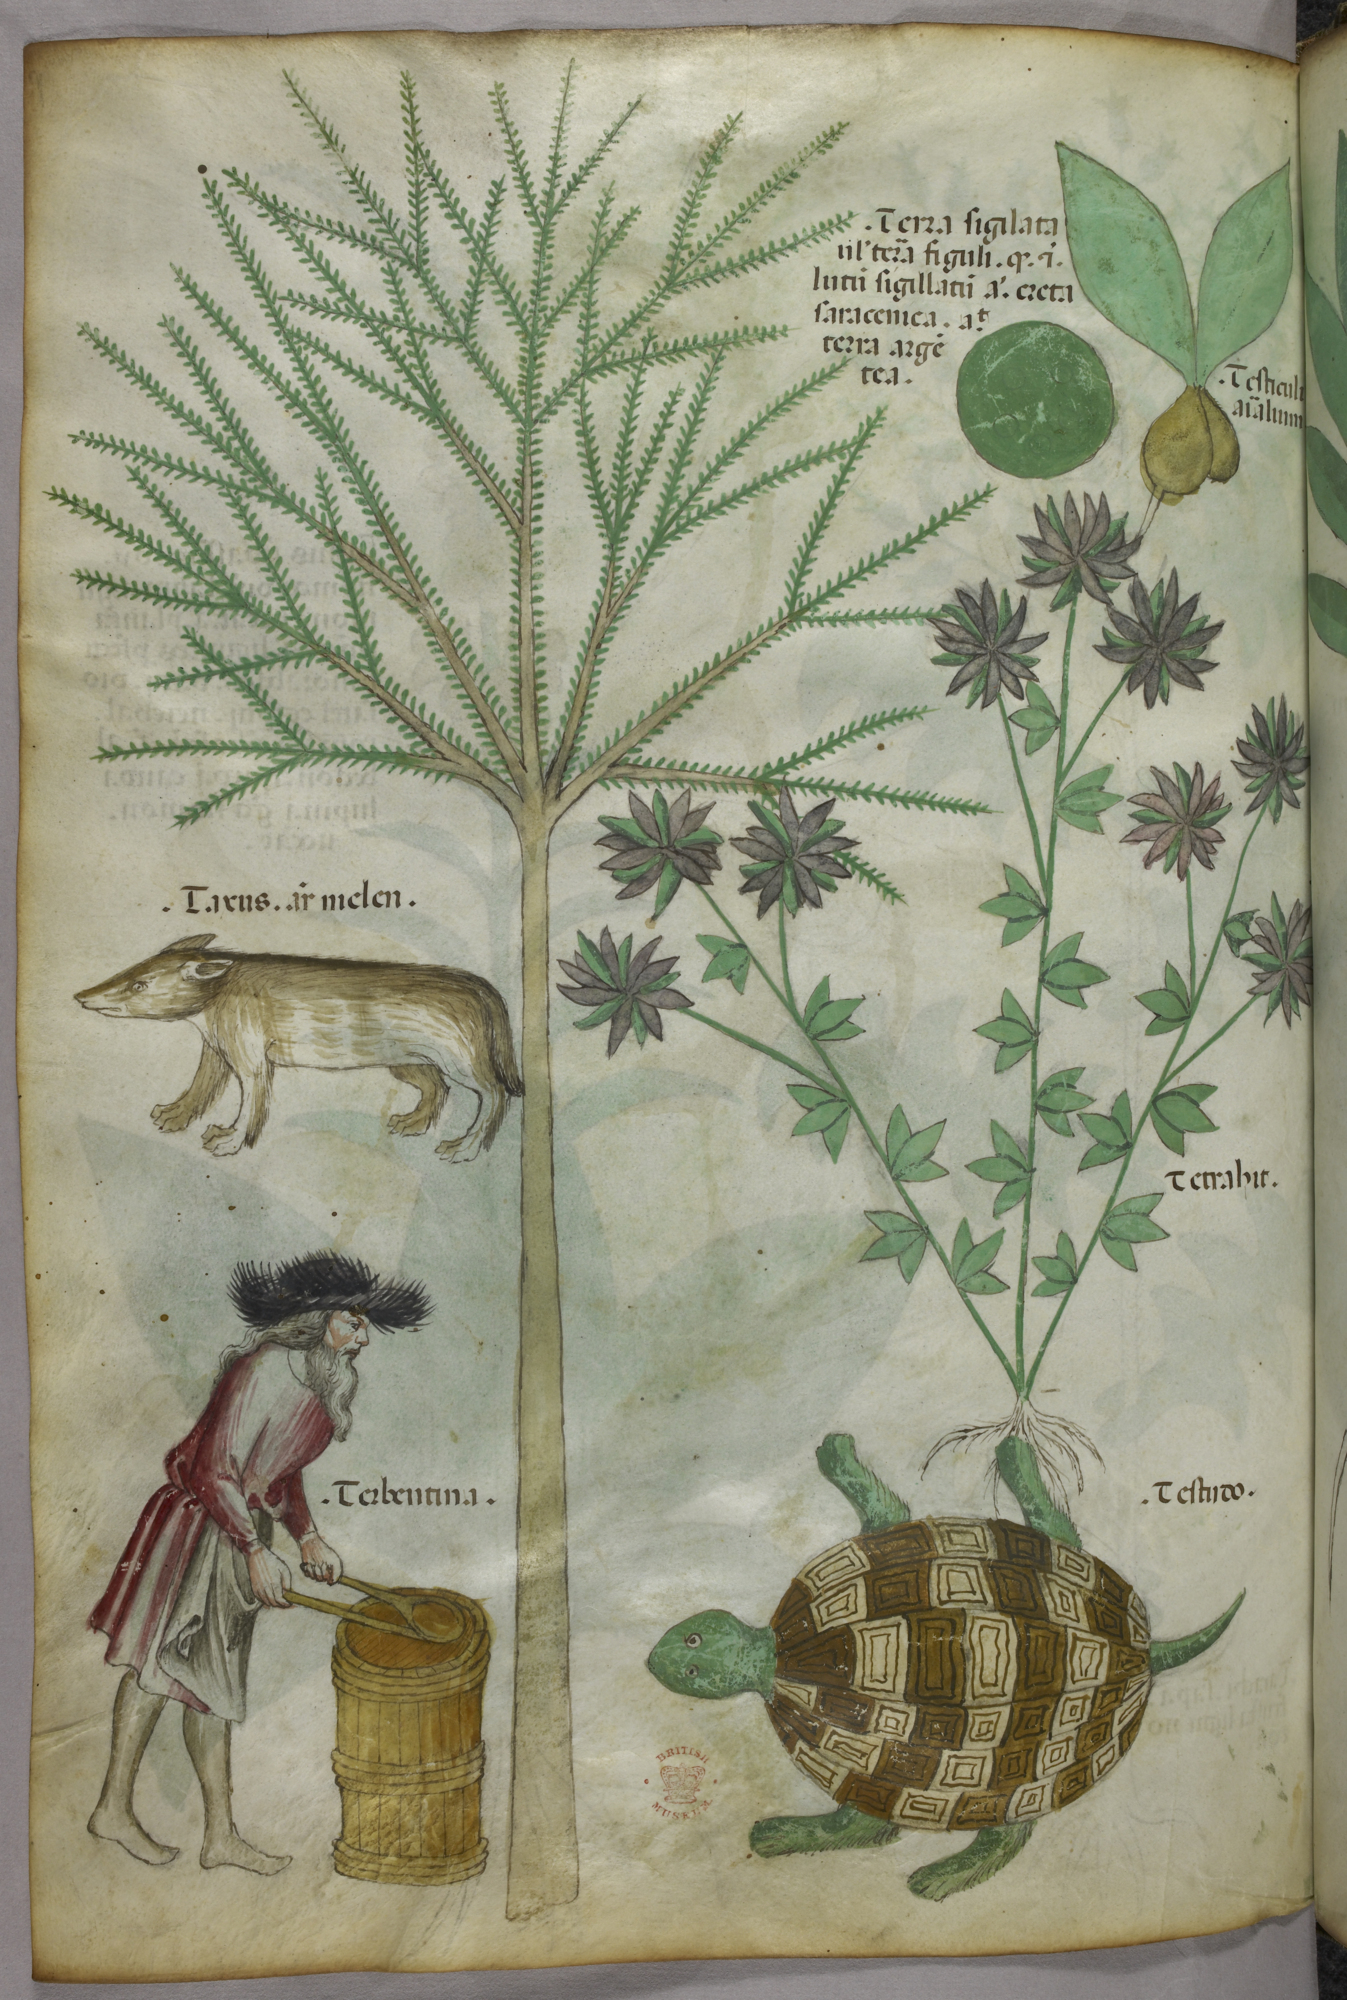 .Terra sigilata
ul' terа̄ figuli. q̄. i̅.
lutū sigillatū a'. creta
saracenica. at
terra argē
tea.
.Testiculi
aı̄alium
.Taxus. ar̄ melen.
Tetrahit.
.Terbentina.
.Testudo.
BRITISH
MUSEUM